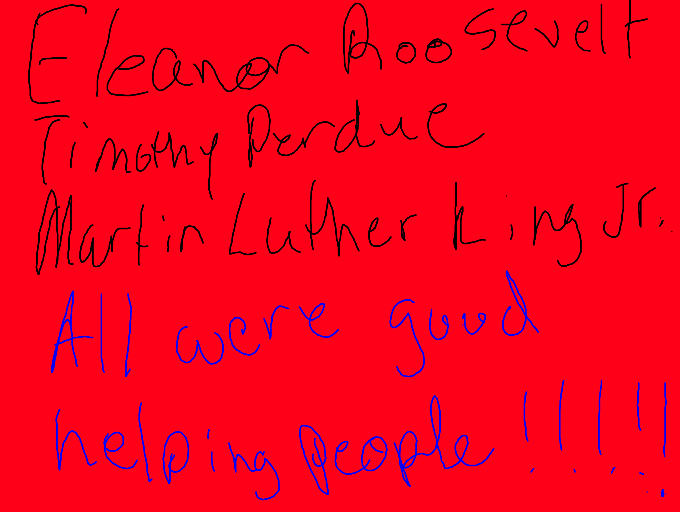 Eleanor Roosevelt
Timothy Perdue
Martin Luther King Jr.
All were good
helping people!!!!!